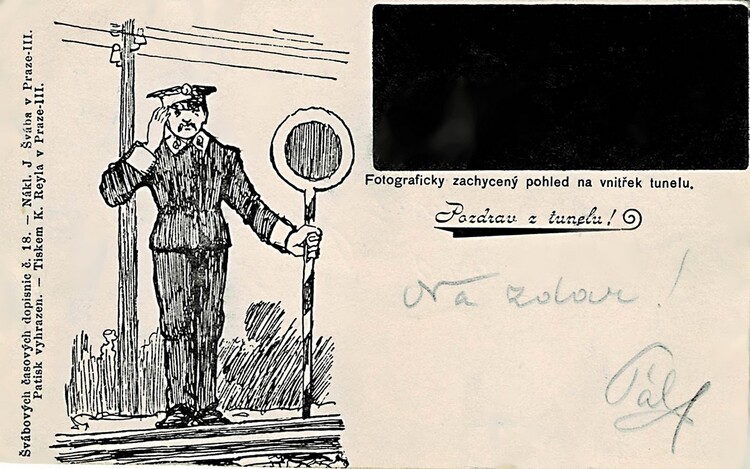 Švábových časových dopisnic č. 18. — Nákl. J Švába v Praze-III.
Patisk vyhrazen. — Tiskem K. Reyla v Praze-III.
Fotograficky zachycený pohled na vnitřek tunelu.
Pozdrav z tunelu!
Na zdar!